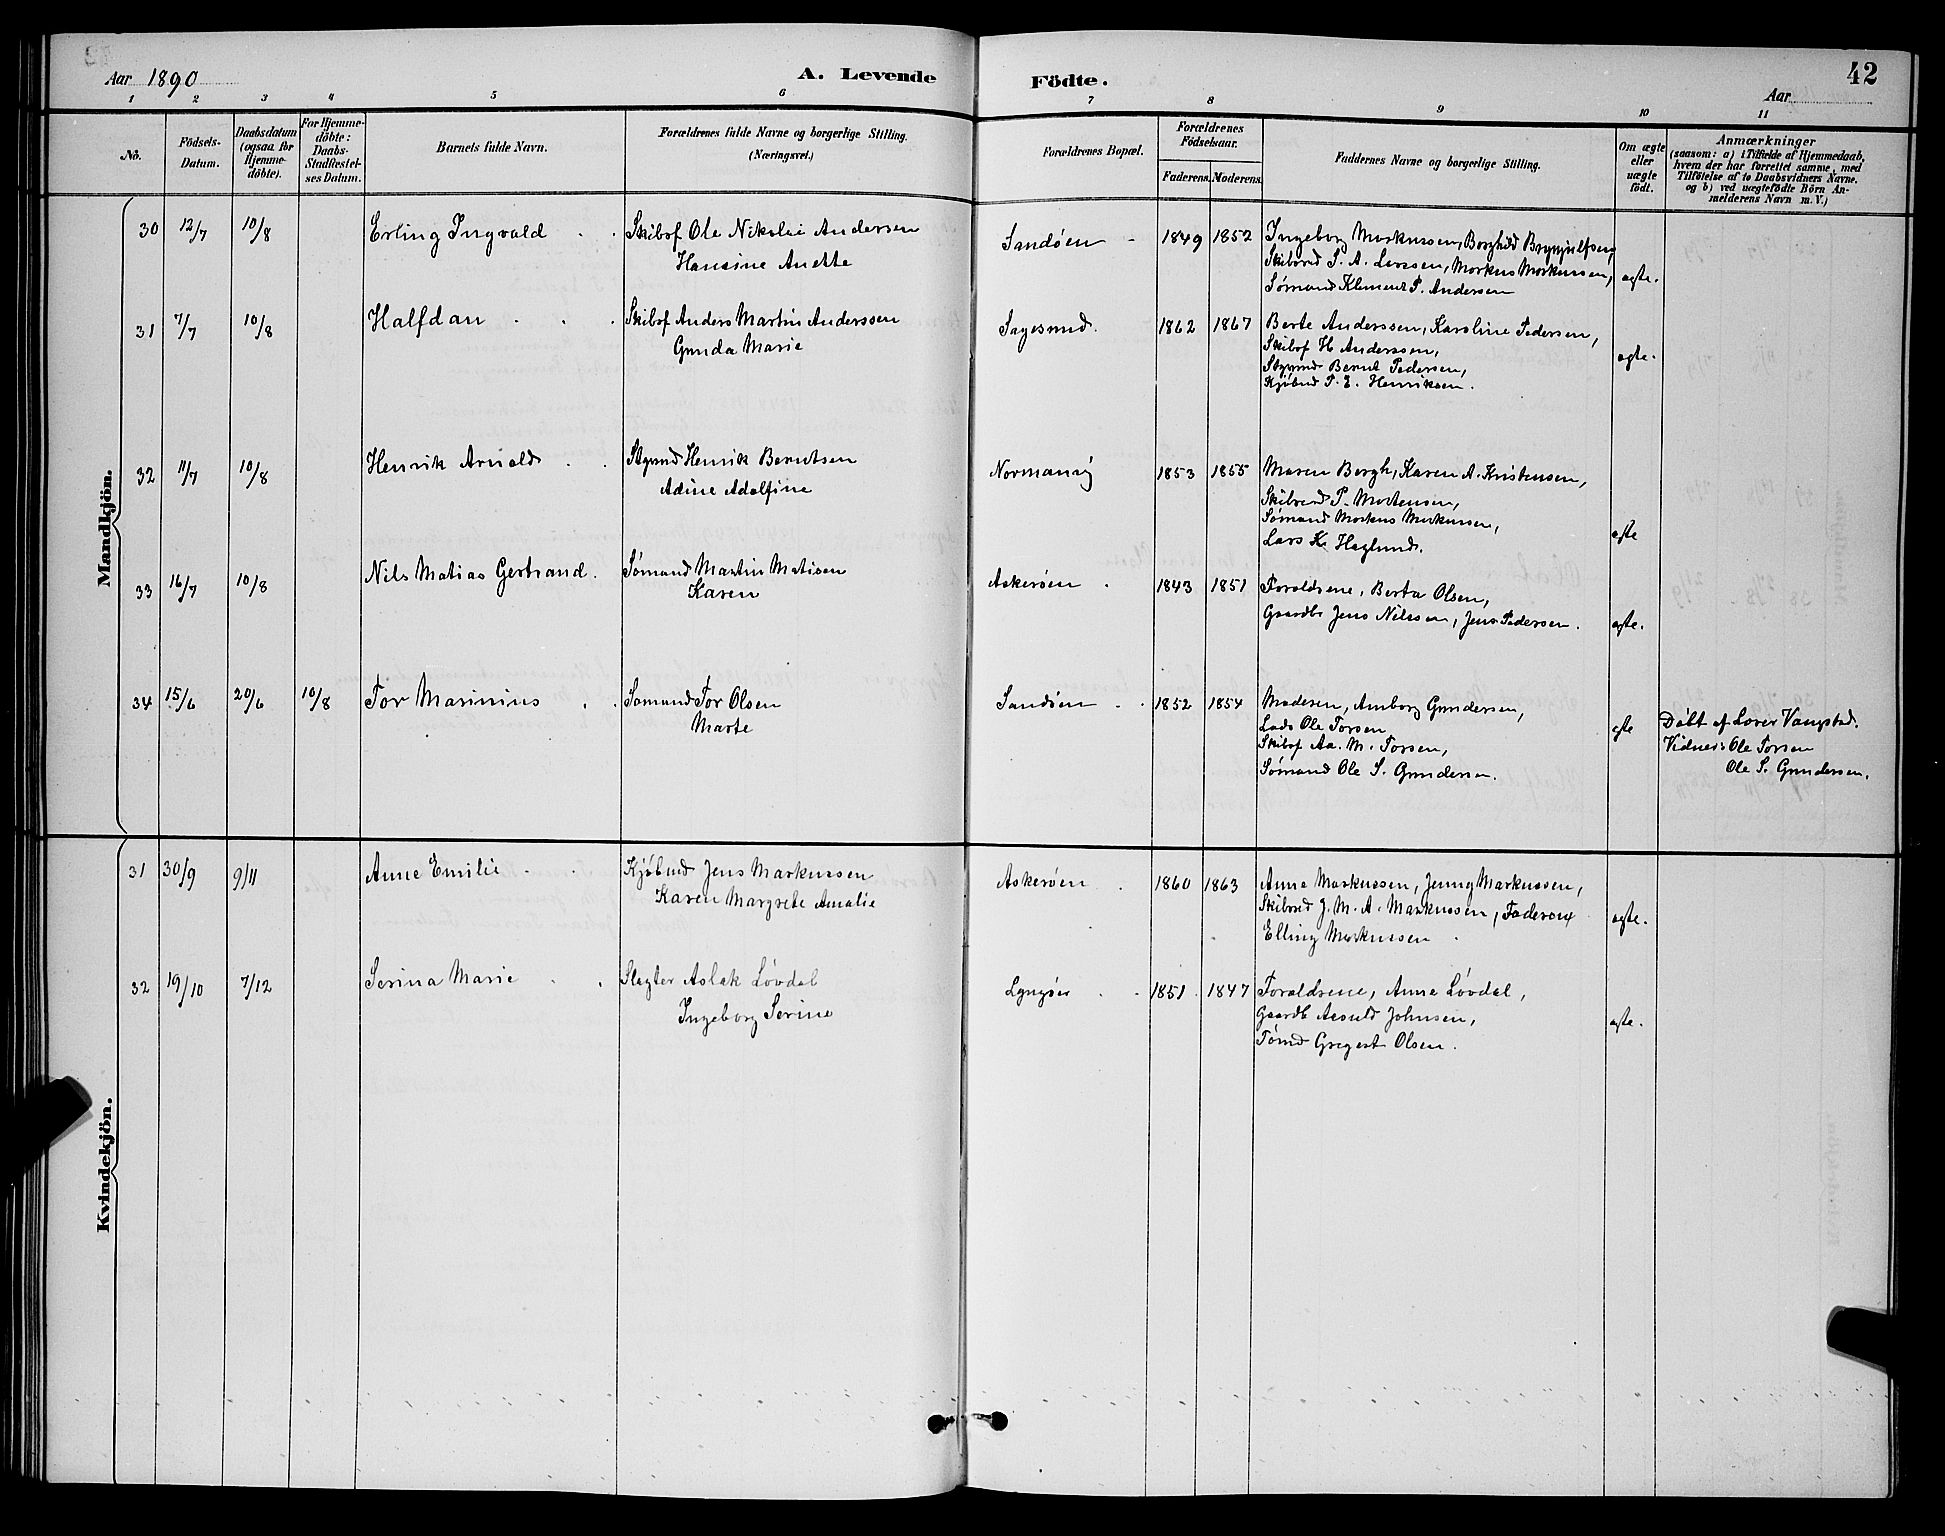 Aar 1890 A. Levende Födte. 42
Aar
1 2 3 4 5 6 7 8 9 10 11
No.
Födsels-Datum.
Daabsdatum (ogsaa for Hjemme-döbte).
For Hjemme-döbte: Daabs-Stadfæstel-ses Datum.
Barnets fulde Navn.
Forældrenes fulde Navne og borgerlige Stilling.
(Næringsvei.)
Forældrenes Bopæl.
Forældrenes Födselsaar.
Faderens. Moderens.
Faddernes Navne og borgerlige Stilling.
Om ægte eller uægte födt.
Anmærkninger
(saasom: a) i Tilfælde af Hjemmedaab,
hvem der har forrettet samme, med
Tilföielse af to Daabsvidners Navne.
og b) ved uægtefödte Börn An-
melderens Navn m. V.)
Mandkjön.
30 12/7 10/8 Erling Ingvald Skibsf Ole Nikolai Andersen Sandøen 1849 1852 Ingeborg Markussen, Borghild Brynjulfsen,
Hansine Anette Skibsred S. A. Larssen, Markus Markussen, ægte.
Sømand Klement P. Andersen
31 7/7 10/8 Halfdan Skibsf Anders Martin Anderssen Sagesund. 1862 1867 Berte Anderssen, Karoline Pedersen,
Gunda Marie Skibsf H Anderssen, ægte.
Styrmd Bernt Pedersen,
Kjøbmd P. E. Henriksen.
32 11/7 10/8 Henrik Arnold Styrmd Henrik Berntsen Normanvig 1853 1855 Maren Bergh, Karen A. Kristensen,
Adine Adolfine Skibsred P. Mortensen,
Sømand Markus Markussen, ægte
Lars K. Haglund.
33 16/7 10/8 Nils Matias Gertrand. Sømand Martin Matisen Askerøen 1843 1851 Forældrene, Berta Olsen,
Karen Gaardbr Jens Nilssen, Jens Pedersen. ægte.
34 15/6 20/6 10/8 Tor Marinius Sømand Tor Olsen Sandøen 1852 1854 Moderen, Amborg Gundersen,
Marte Lods Ole Torsen ægte Døbt af Lærer Vangstad.
Skibsf Aa. M. Torsen, Vidner: Ole Torsen
Sømand Ole S. Gundersen. Ole S. Gundersen.
Kvindekjön.
31 30/9 9/11 Anne Emilie Kjøbmd Jens Markussen Askerøen 1860 1863 Anna Markussen, Jenny Markussen,
Karen Margrete Amalie Skibsred J. M. A. Markussen, Faderen, ægte.
Elling Markussen
32 19/10 7/12 Serina Marie Slagter Aslak Løvdal Lyngøer 1851 1847 Forældrene, Anne Løvdal,
Ingeborg Serine Gaardb Asuld Johnsen, ægte.
Tømd Gregert Olsen.